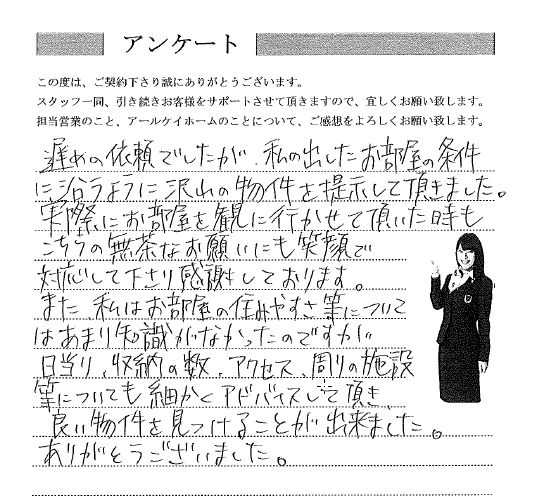 アンケート
この度は、ご契約下さり誠にありがとうございます。
スタッフ一同、引き続きお客様をサポートさせて頂きますので、宜しくお願い致します。
担当営業のこと、アールケイホームのことについて、ご感想をよろしくお願い致します。
遅めの依頼でしたが、私の出したお部屋の条件
に沿うように沢山の物件を提示して頂きました。
実際にお部屋を観に行かせて頂いた時も
こちらの無茶なお願いにも笑顔で
対応して下さり感謝しております。
また 私はお部屋の住みやすさ等について
はあまり知識がなかったのですが
日当り、収納の数、アクセス、周りの施設
等についても細かくアドバイスして頂き、
良い物件を見つけることが出来ました。
ありがとうございました。